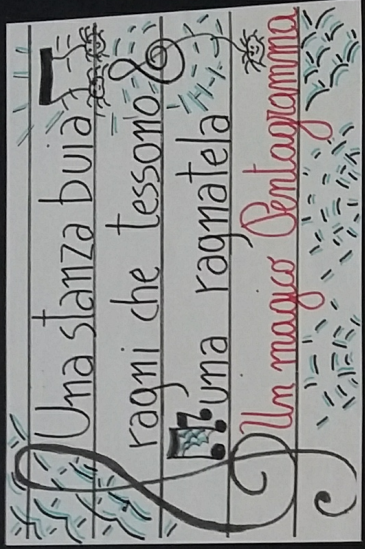 Una stanza buia
ragni che tessono
una ragnatela
Un magico Pentagramma